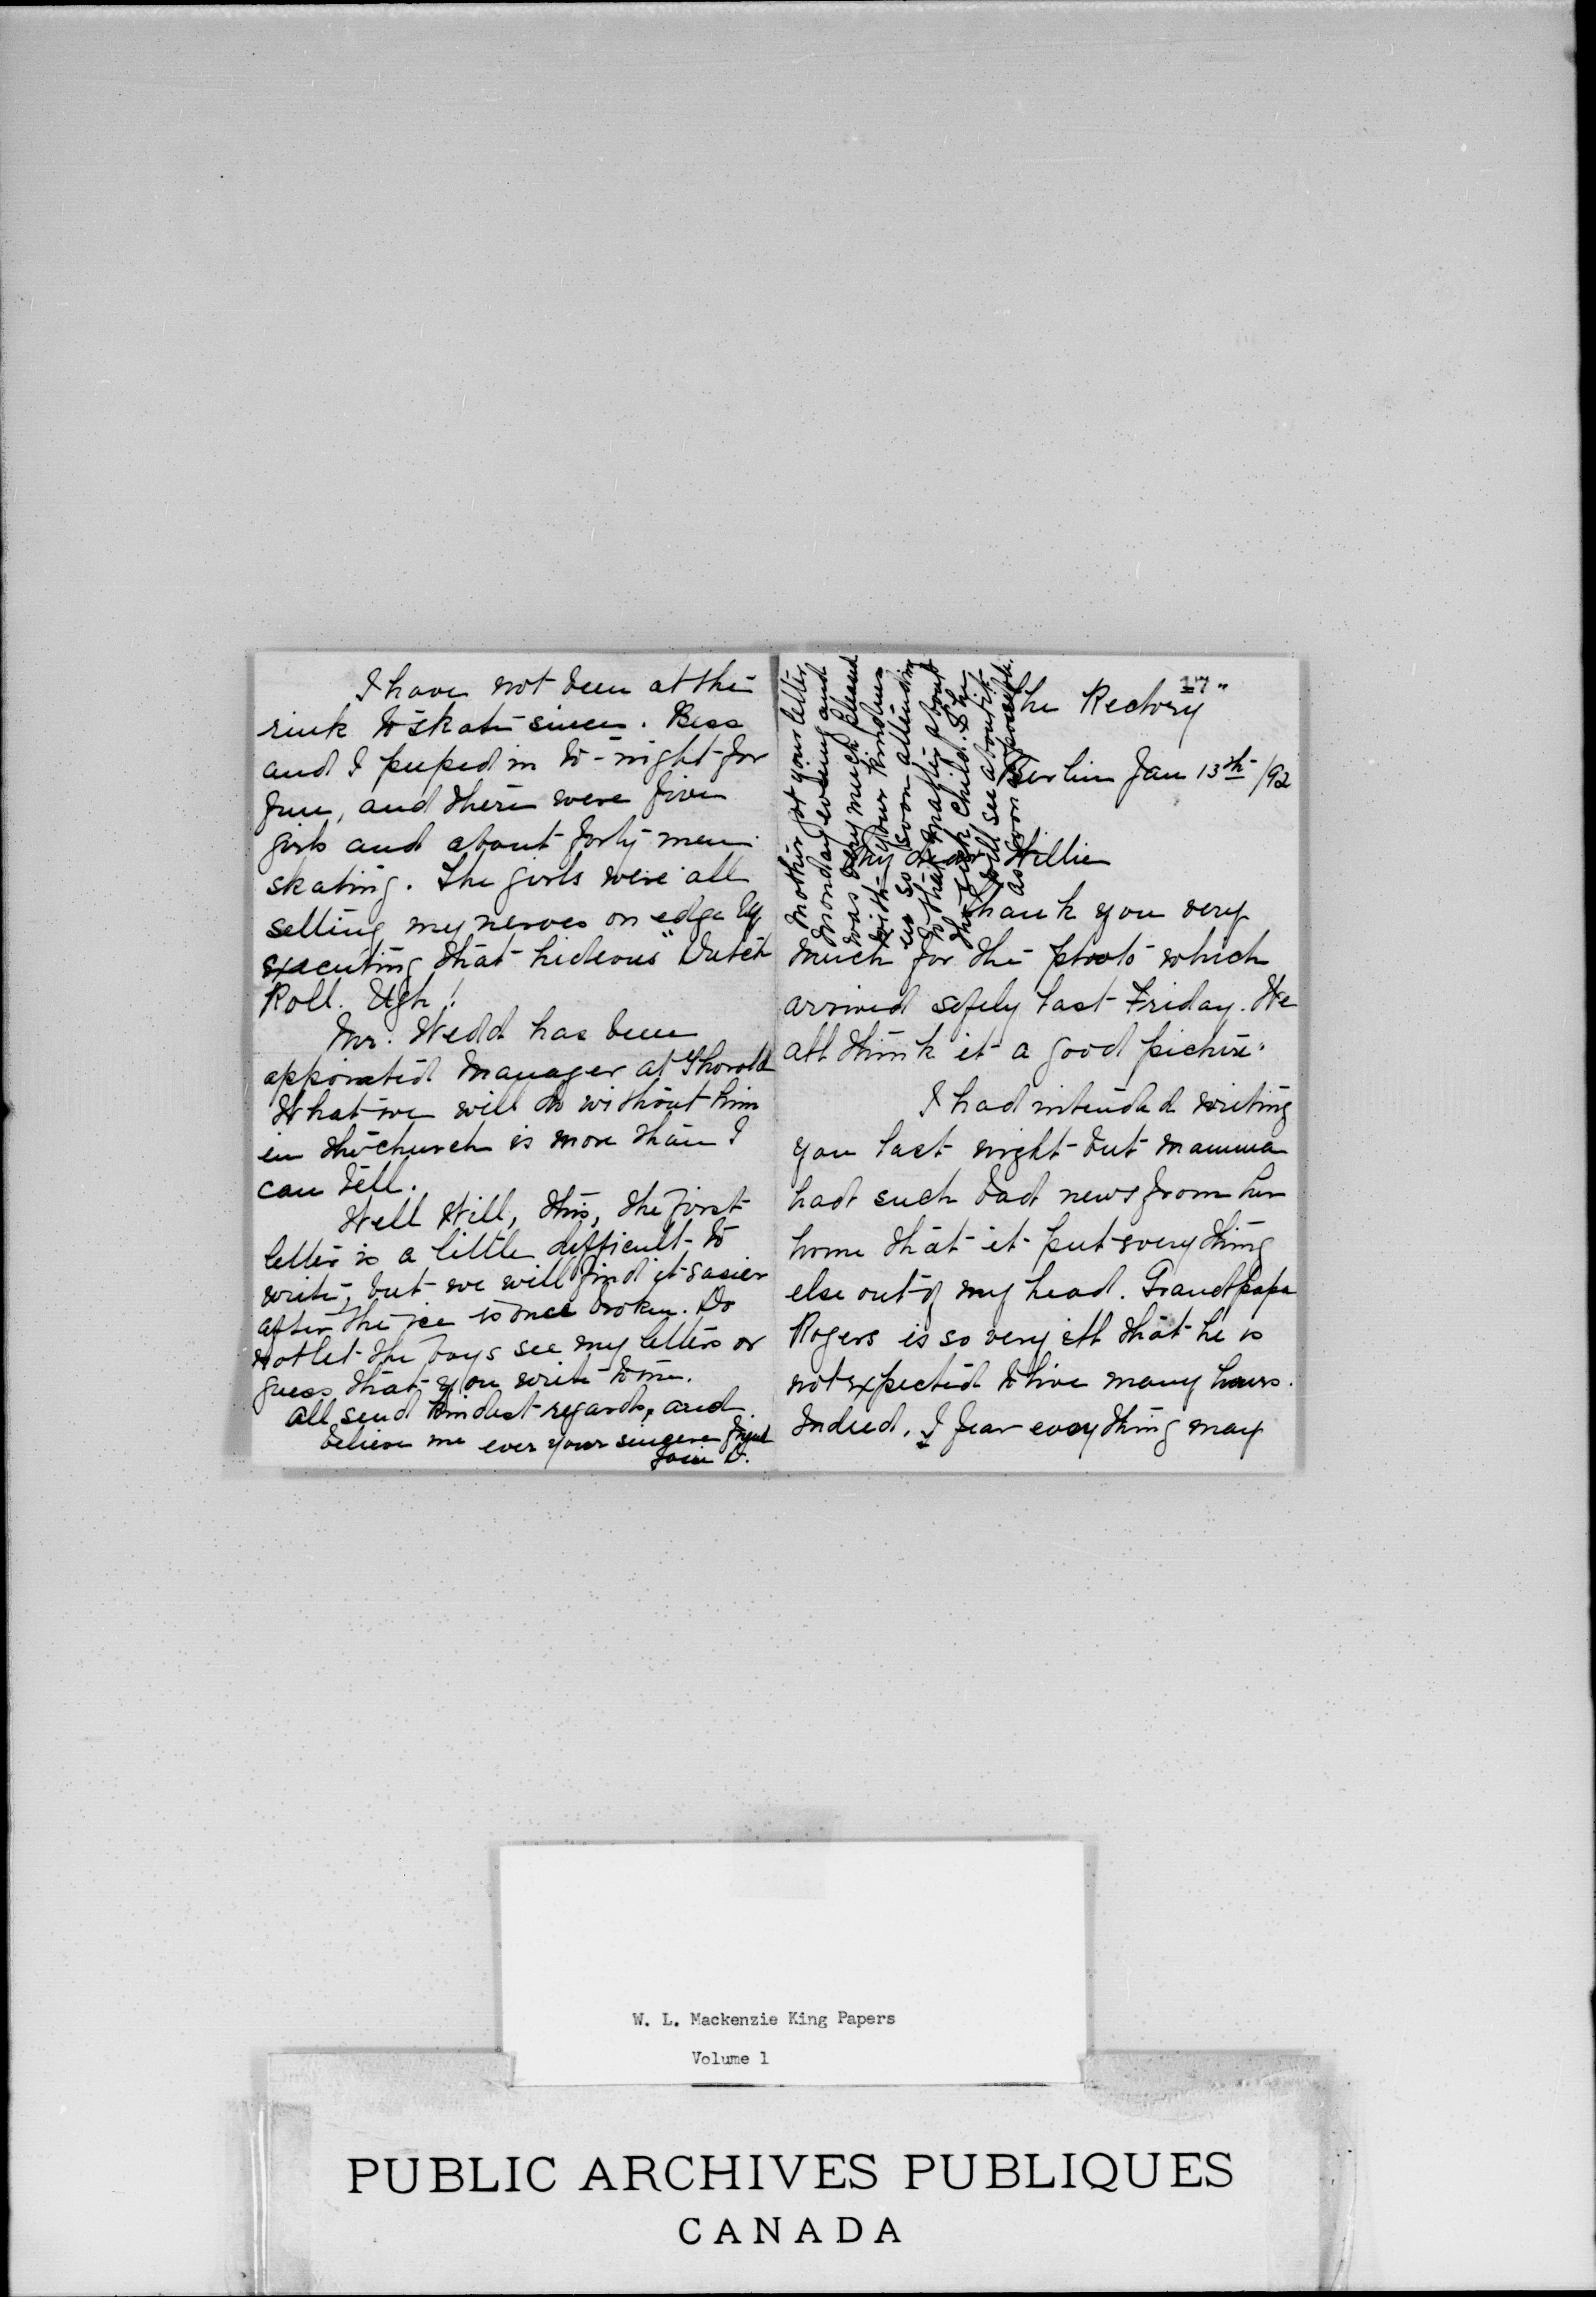 I have not been at the
rink to skate since. Bess
and I peeped in to-night for
fun, and there were five
girls and about forty men
skating. The girls were all
setting my nerves on edge by
executing that hideous "Dutch
Roll. Ugh!
Mr. Wedd has been
appointed manager at Thorold
What we will do without him
in the church is more than I
can tell.
Well Will, this, the first
letter is a little difficult to
write, but we will find it easier
after the ice is once broken. Do
not let the boys see my letters or
guess that you write to me.
All send kindest regards, and
believe me ever your sincere friend
D.
17
The Rectory"
Berlin Jan 13th /92
My dear Willie
Thank you very
much for the photo which
arrived safely last Friday. We
all think it a good picture.
I had intended writing
you last night but mamma
had such bad news from her
home that it put everything
else out of my head. Grandpapa
Rogers is so very ill that he is
not expected to live many hours.
Indeed, I fear everything may
Mother got your letter
Monday evening and
was very much pleased
with your kindness
in so soon attending
to that matter about
the sick child. She
will see about it
as soon as possible.
W. L. Mackenzie King Papers
Volume 1
PUBLIC ARCHIVES PUBLIQUES
CANADA